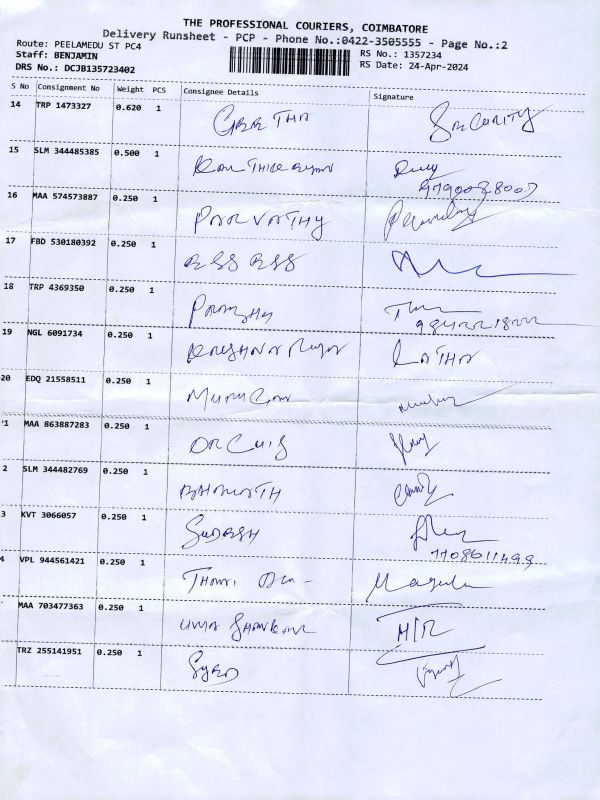 THE PROFESSIONAL COURIERS, COIMBATORE
Delivery Runsheet - PCP - Phone No.:0422-3505555 - Page No.:2
Route: PEELAMEDU ST PC4
RS No.: 1357234
Staff: BENJAMIN
RS Date: 24-Apr-2024
DRS No.: DCJB135723402
S No Consignment No Weight PCS Consignee Details Signature
14 TRP 1473327 0.620 1 GEETHA SECURITY
15 SLM 344485385 0.500 1
16 MAA 574573887 0.250 1 PARVATHY
17 FBD 530180392 0.250 1
18 TRP 4369350 0.250 1
19 NGL 6091734 0.250 1 LATHA
20 EDQ 21558511 0.250 1 MURUGAN
1 MAA 863887283 0.250 1
2 SLM 344482769 0.250 1 BHARATH
3 KVT 3066057 0.250 1 SUDESH
7708611499
4 VPL 944561421 0.250 1
MAA 703477363 0.250 1 UMA SHANKAR H/R
TRZ 255141951 0.250 1 SYED